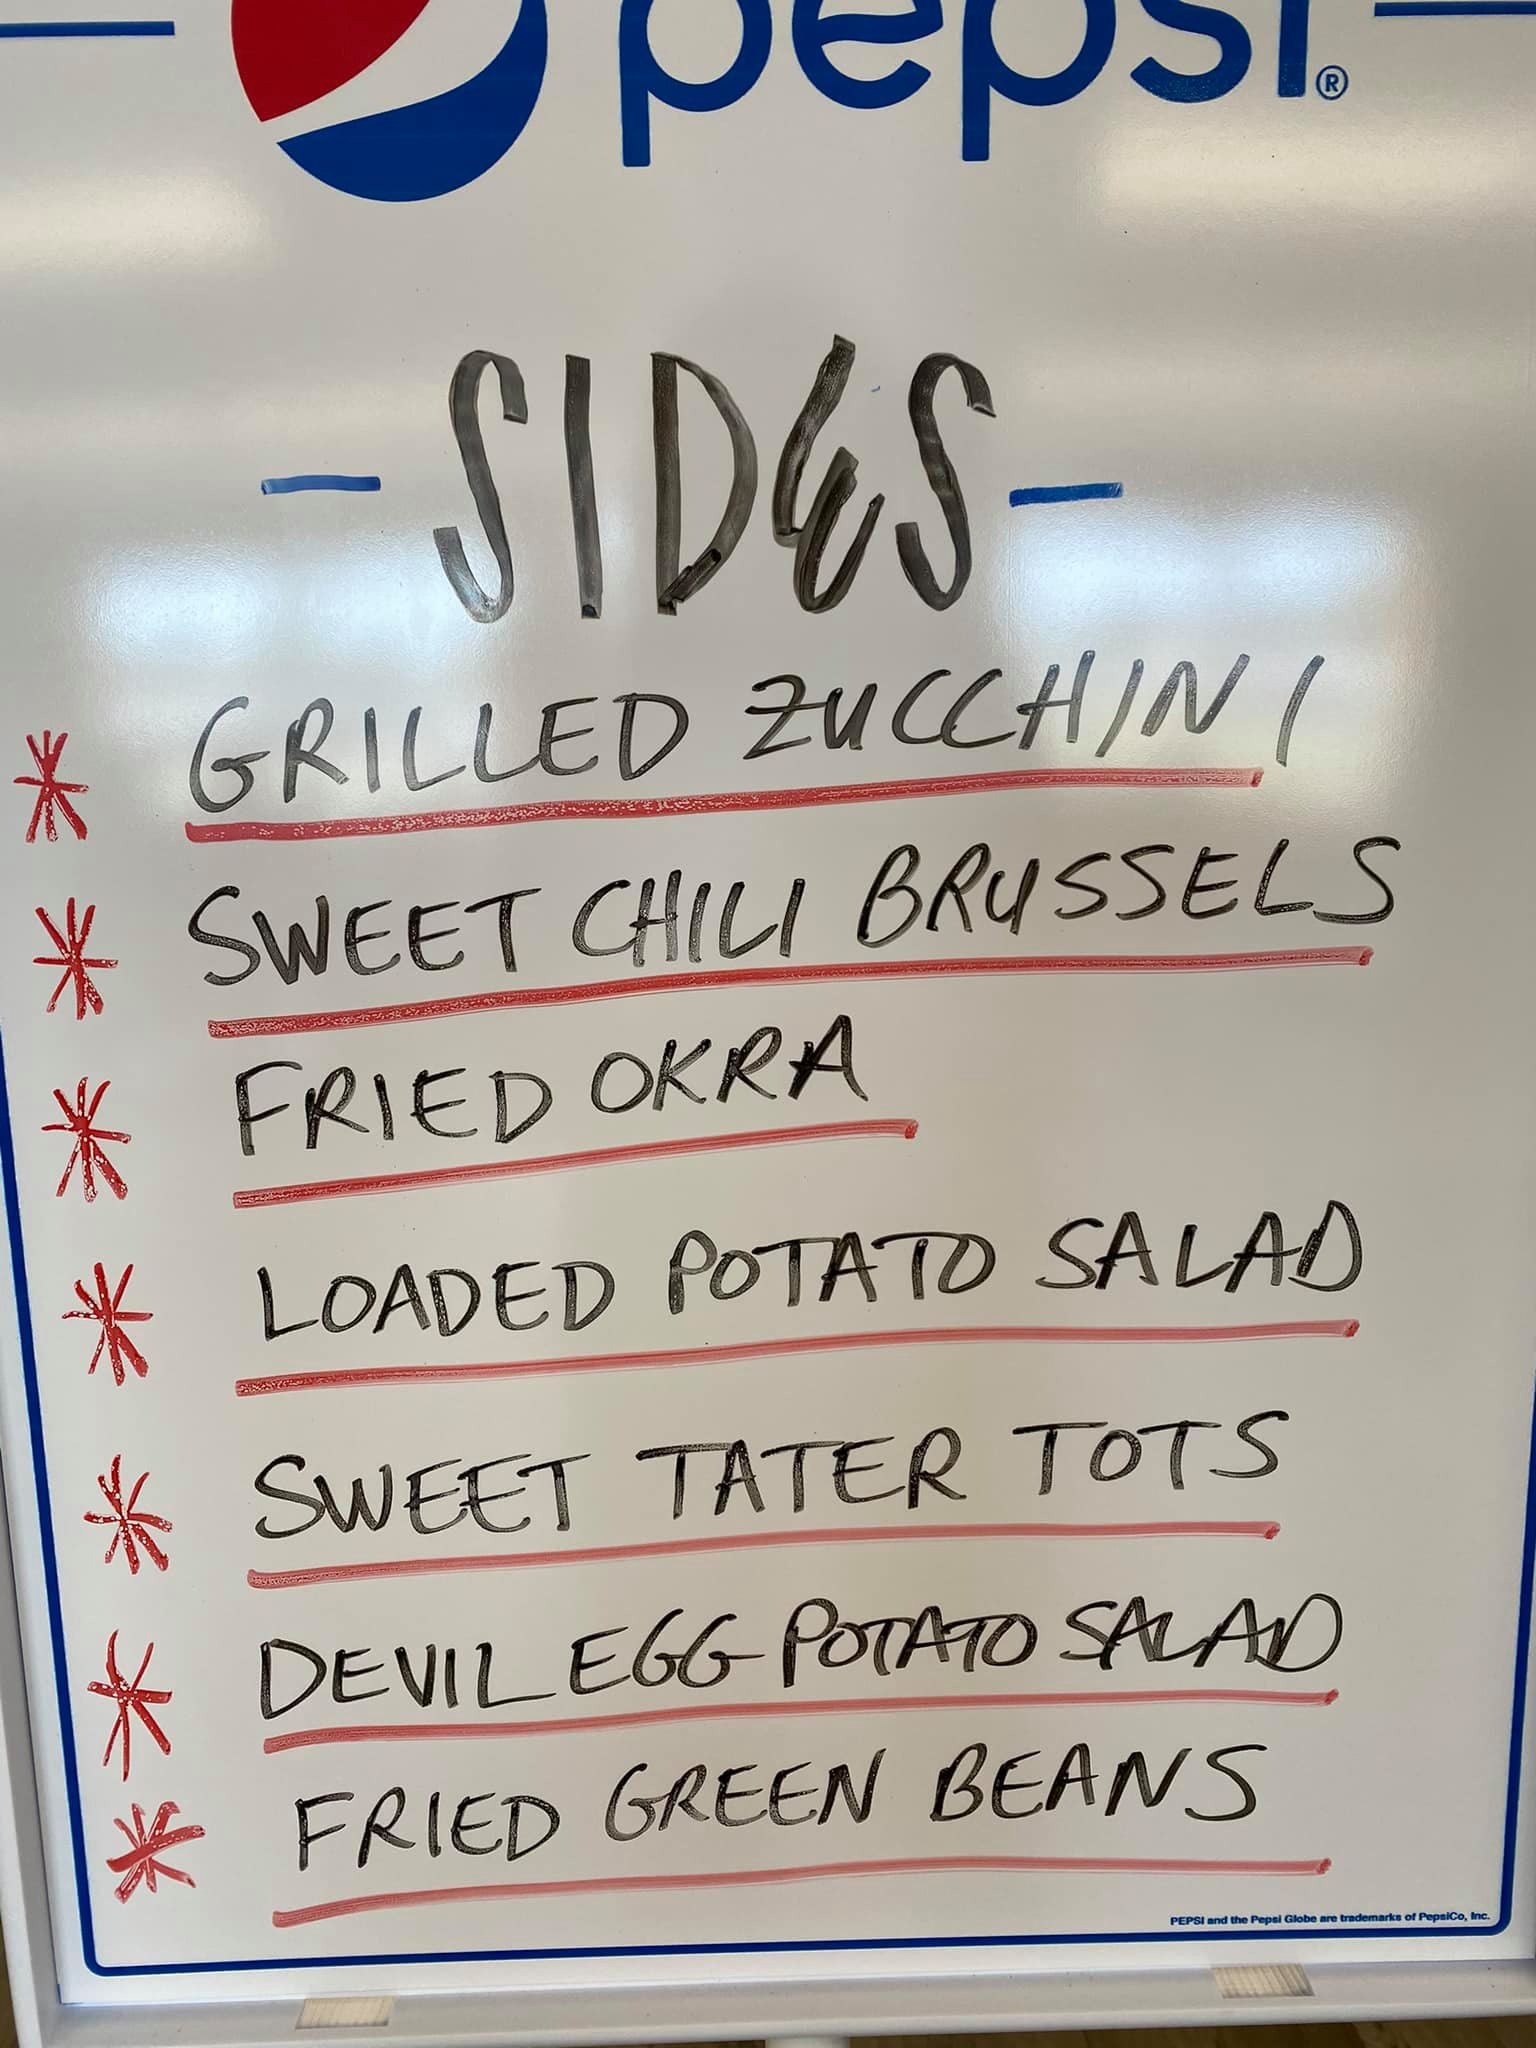 pepsi®
- SIDES -
* GRILLED ZUCCHINI
* SWEET CHILI BRUSSELS
* FRIED OKRA
* LOADED POTATO SALAD
* SWEET TATER TOTS
* DEVIL EGG POTATO SALAD
* FRIED GREEN BEANS
PEPSI and the Pepsi Globe are trademarks of PepsiCo, Inc.